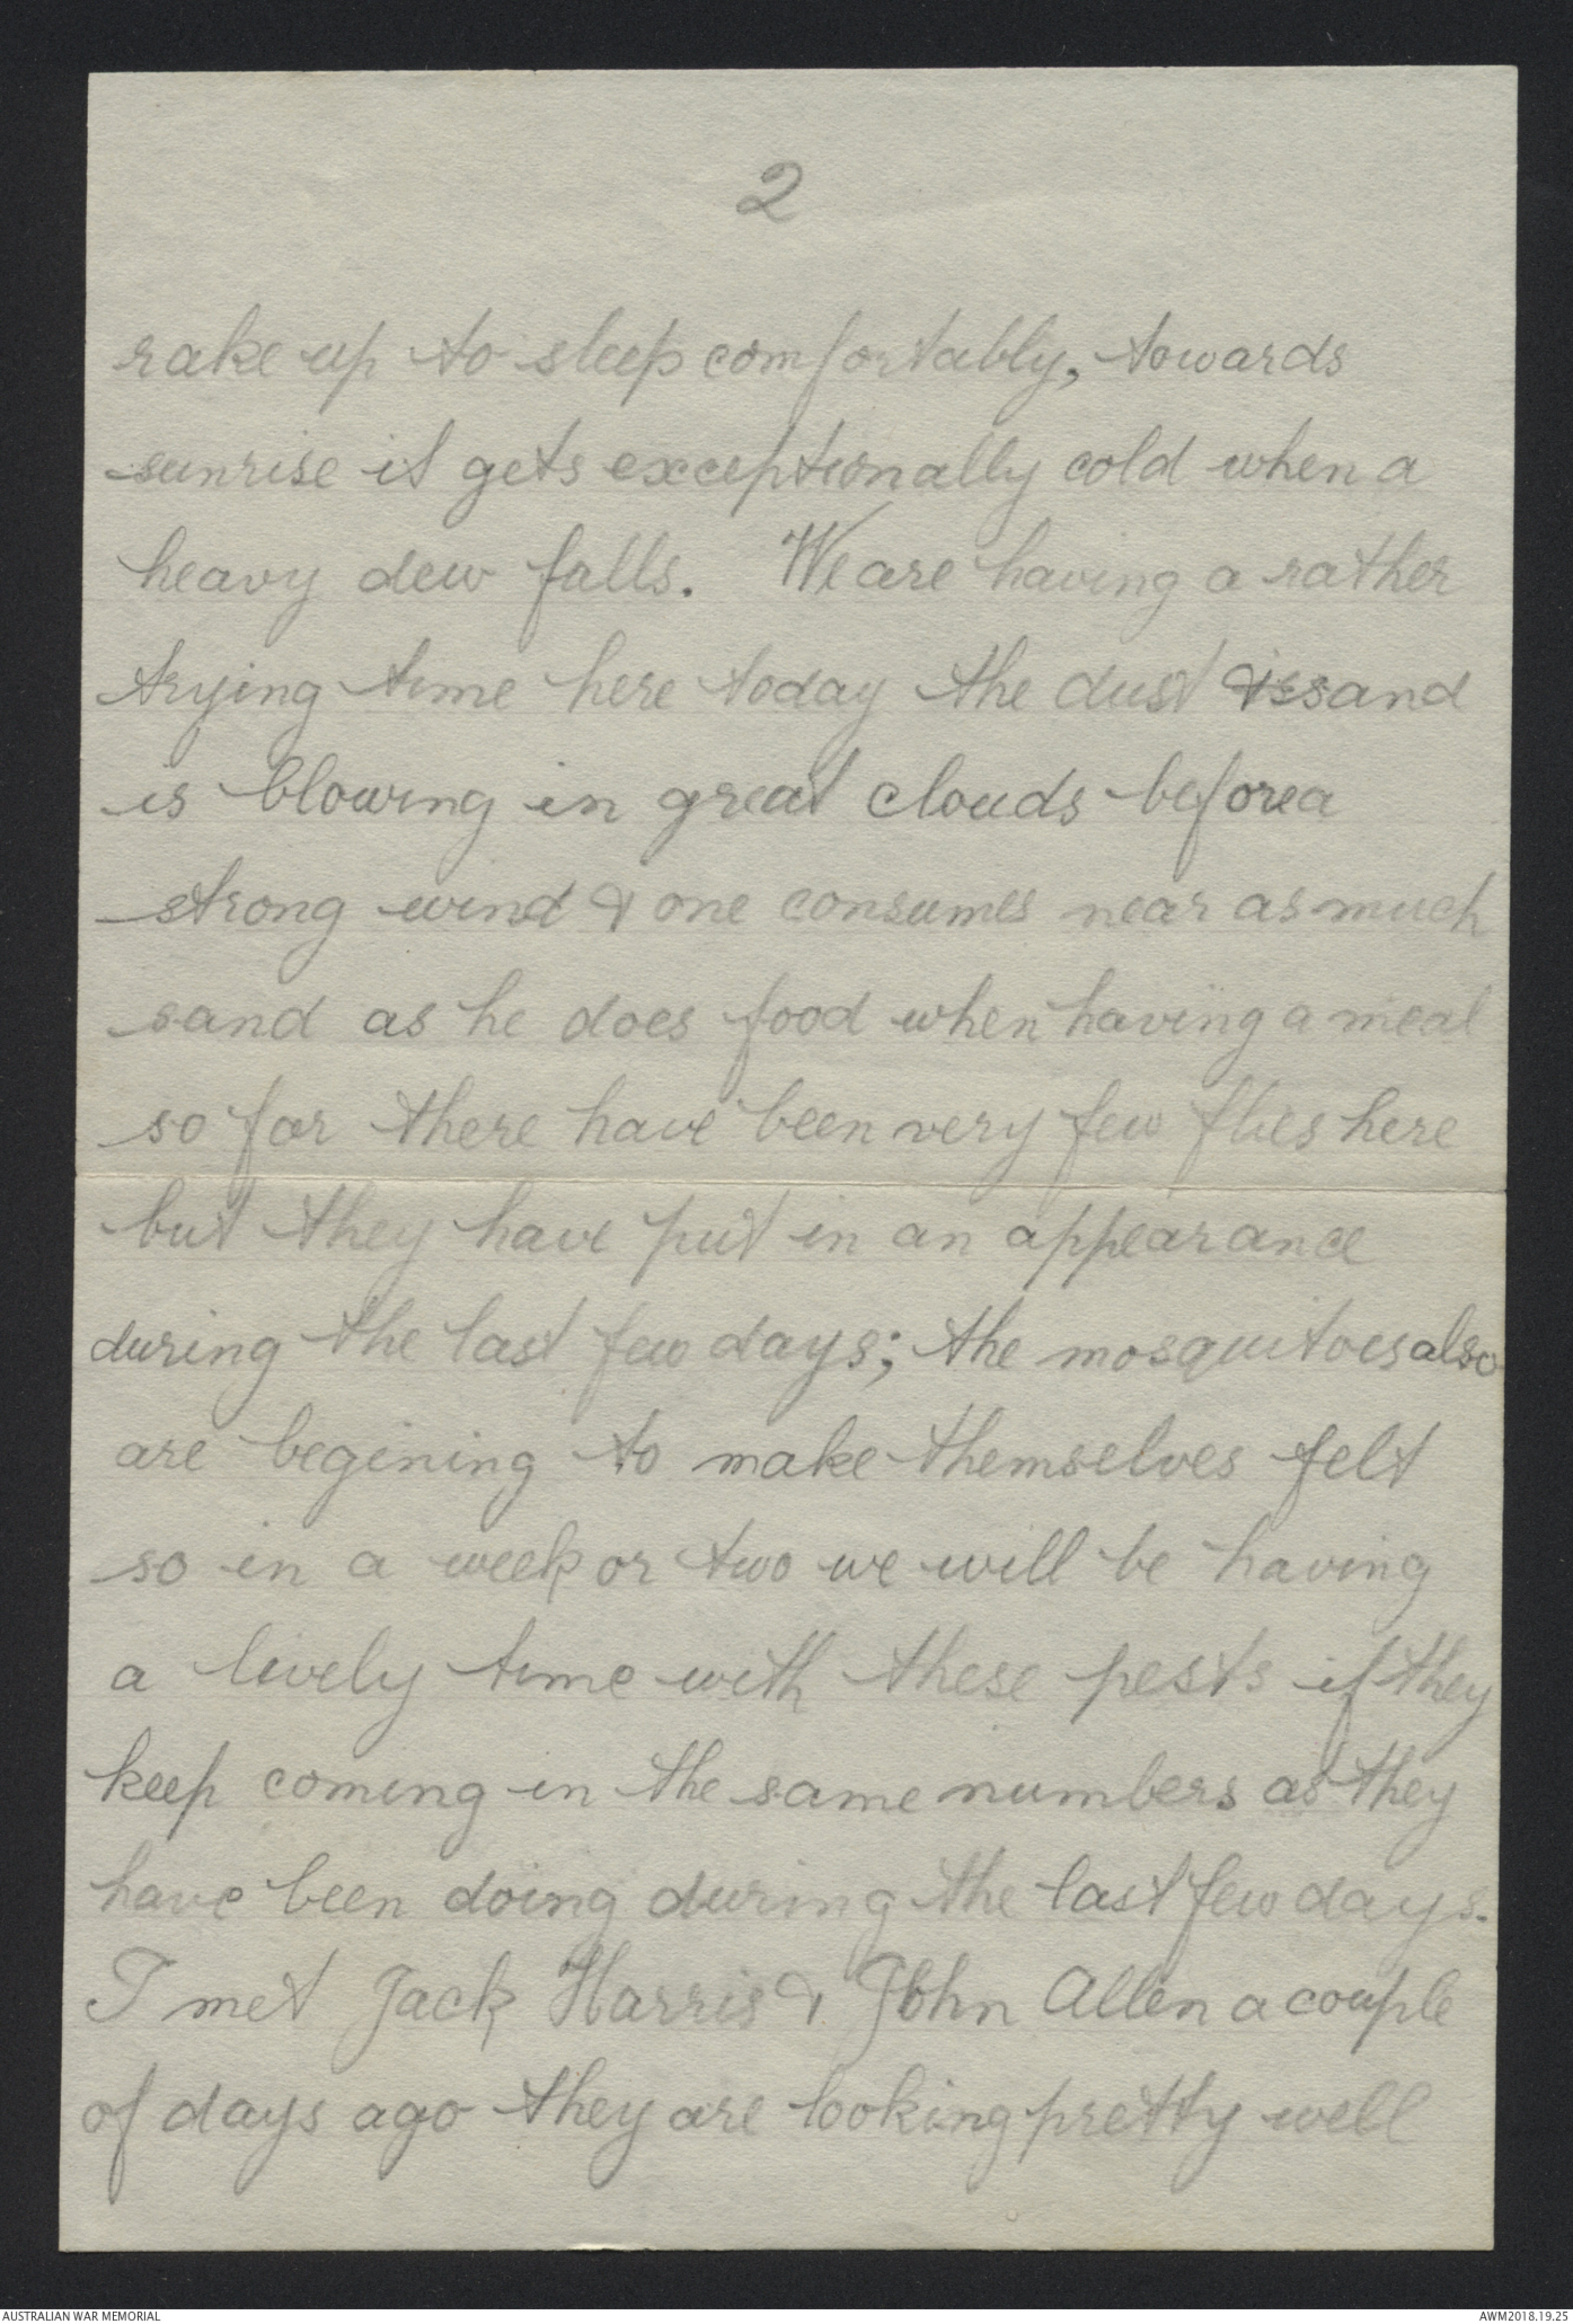 2
rake up to sleep comfortably, towards
sunrise it gets exceptionally cold when a
heavy dew falls. We are having a rather
trying time here today the dust & sand
is blowing in great clouds before a
strong wind & one consumes near as much
sand as he does food when having a meal
so far there have been very few flies here
but they have put in an appearance
during the last few days; the mosquitoes also
are begining to make themselves felt
so in a week or two we will be having
a lively time with these pests if they
keep coming in the same numbers as they
have been doing during the last few days.
I met Jack Harris & John Allen a couple
of days ago they are looking pretty well
AUSTRALIAN WAR MEMORIAL
AWM2018.19.25